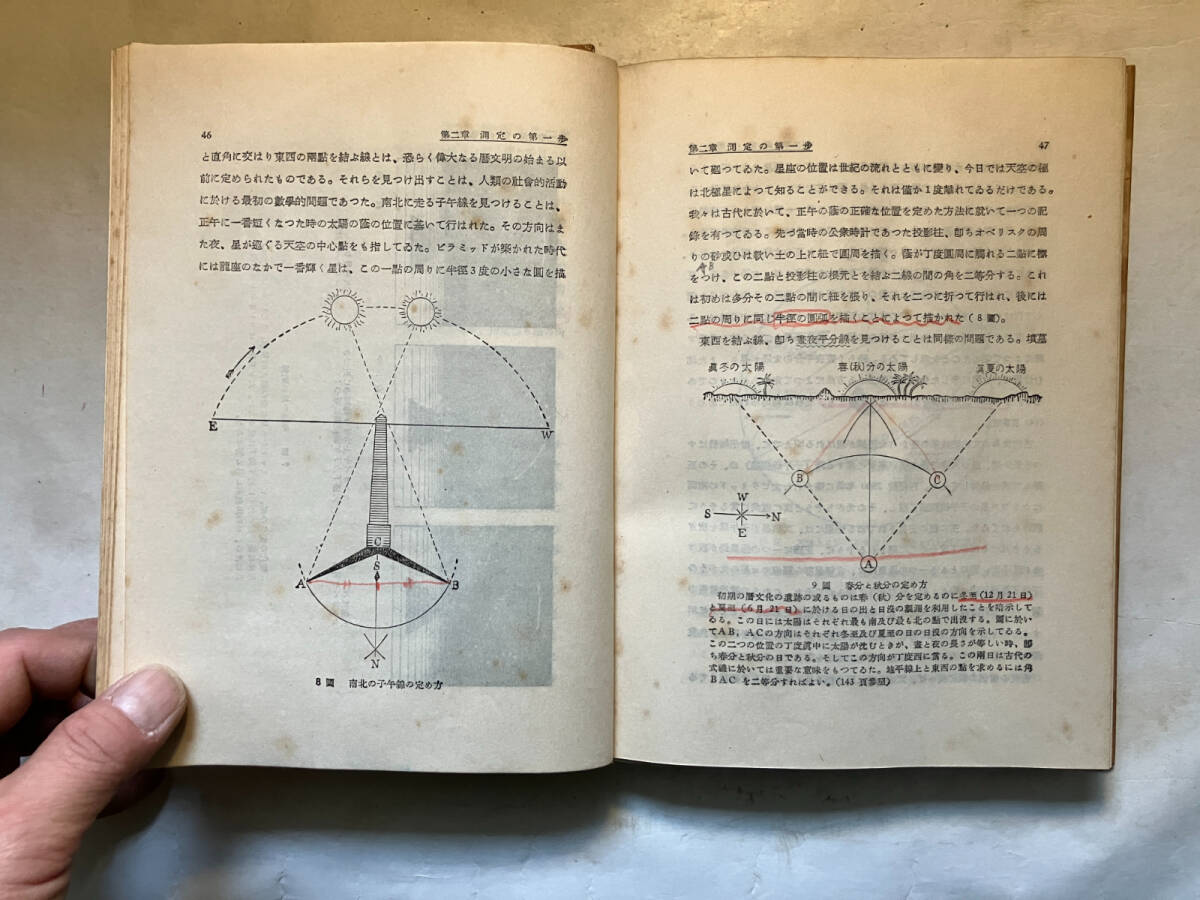 46
第二章 測定の第一步
と直角に交はり東西の兩點を結ぶ線とは、恐らく偉大なる曆文明の始まる以
前に定められたものである。それらを見つけ出すことは、人類の社會的活動
に於ける最初の數學的問題であつた。南北に走る子午線を見つけることは、
正午に一番短くなつた時の太陽の蔭の位置に基いて行はれた。その方向はま
た夜、星が巡ぐる天空の中心點をも指してゐた。ピラミッドが築かれた時代
には龍座のなかで一番輝く星は、この一點の周りに半徑3度の小さな圓を描
E
W
C
S
A
B
N
8圖 南北の子午線の定め方
第二章 測定の第一步
47
いて廻つてゐた。星座の位置は世紀の流れとともに變り、今日では天空の極
は北極星によつて知ることができる。それは僅か1度離れてゐるだけである。
我々は古代に於いて、正午の蔭の正確な位置を定めた方法に就いて一つの記
錄を有つてゐる。先づ當時の公衆時計であつた投影柱、卽ちオベリスクの周
りの砂或ひは軟い土の上に紐で圓周を描く。蔭が丁度圓周に觸れる二點に標
AB
をつけ、この二點と投影柱の根元とを結ぶ二線の間の角を二等分する。これ
は初めは多分その二點の間に紐を張り、それを二つに折つて行はれ、後には
二點の周りに同じ半徑の圓弧を描くことによつて描かれた(8圖)。
東西を結ぶ線、卽ち晝夜平分線を見つけることは同樣の問題である。墳墓
眞冬の太陽
春(秋)分の太陽
眞夏の太陽
B
C
W
S
N
E
A
9圖 春分と秋分の定め方
初期の曆文化の遺跡の或るものは春(秋)分を定めるのに冬至(12月21日)
と夏至(6月21日)に於ける日の出と日沒の觀測を利用したことを暗示して
ゐる。この日には太陽はそれぞれ最も南及び最も北の點で出沒する。圖に於い
てAB、ACの方向はそれぞれ冬至及び夏至の日の日沒の方向を示してゐる。
この二つの位置の丁度眞中に太陽が沈むときが、晝と夜の長さが等しい時、卽
ち春分と秋分の日である。そしてこの方向が丁度西に當る。この兩日は古代の
式典に於いては重要な意味をもつてゐた。地平線上と東西の點を求めるには角
BACを二等分すればよい。(143頁參照)